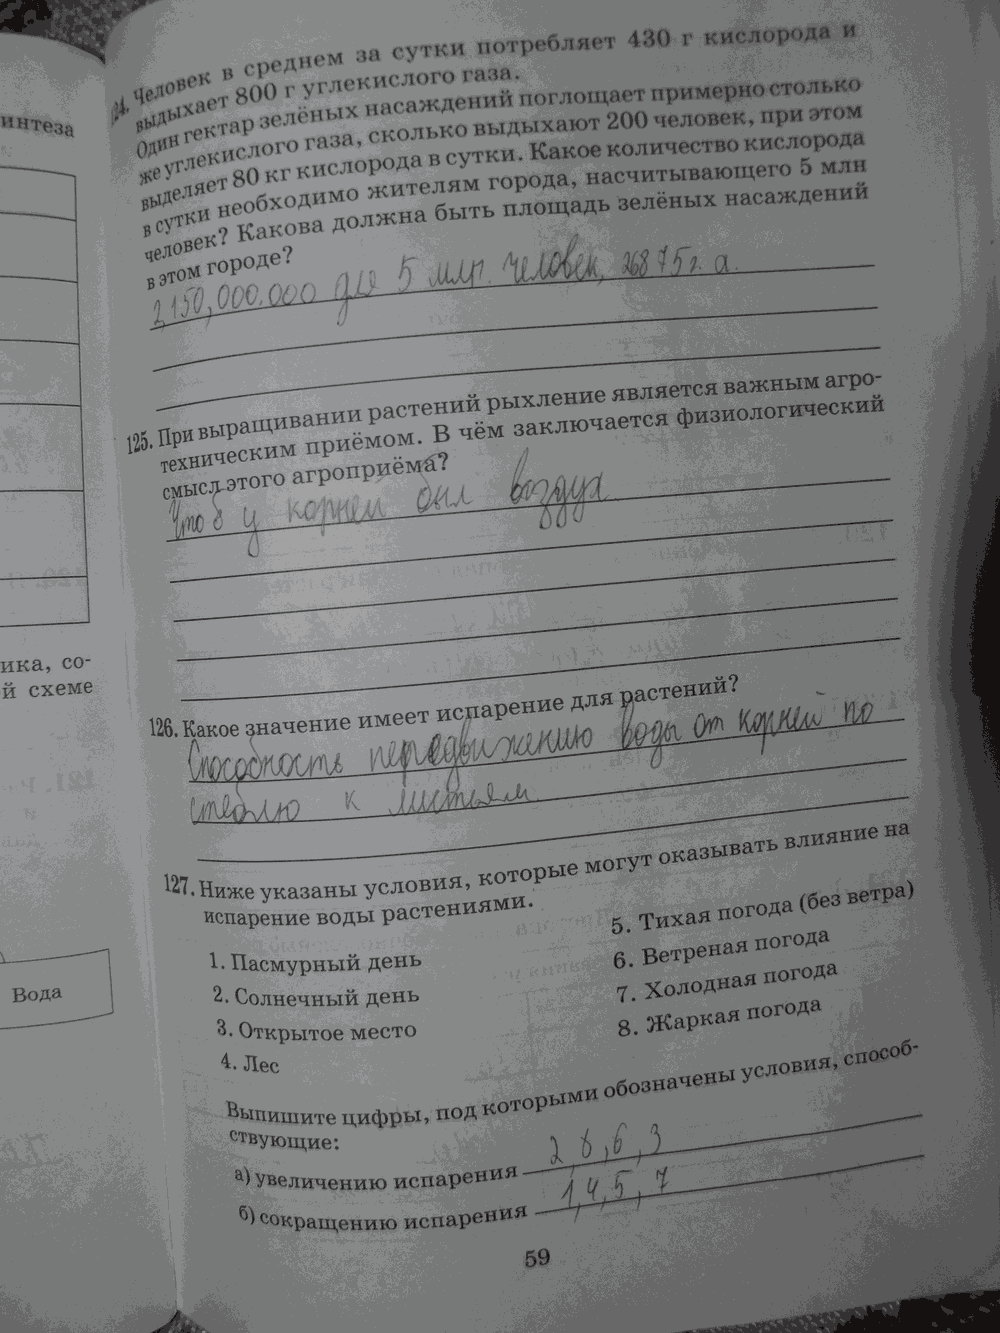 интеза
ика, со-
й схеме
Вода
124. Человек в среднем за сутки потребляет 430 г кислорода и
выдыхает 800 г углекислого газа.
Один гектар зелёных насаждений поглощает примерно столько
же углекислого газа, сколько выдыхают 200 человек, при этом
выделяет 80 кг кислорода в сутки. Какое количество кислорода
в сутки необходимо жителям города, насчитывающего 5 млн
человек? Какова должна быть площадь зелёных насаждений
в этом городе?
2,150,000.000 для 5 млн. человек, 26875 г. а.
125. При выращивании растений рыхление является важным агро-
техническим приёмом. В чём заключается физиологический
смысл этого агроприёма?
Чтоб у корней был воздух
126. Какое значение имеет испарение для растений?
Способность передвижению воды от корней по
стеблю к листьям
127. Ниже указаны условия, которые могут оказывать влияние на
испарение воды растениями.
1. Пасмурный день
2. Солнечный день
3. Открытое место
4. Лес
5. Тихая погода (без ветра)
6. Ветреная погода
7. Холодная погода
8. Жаркая погода
Выпишите цифры, под которыми обозначены условия, способ-
ствующие:
а) увеличению испарения 2, 8, 6, 3
б) сокращению испарения 1, 4, 5, 7
59